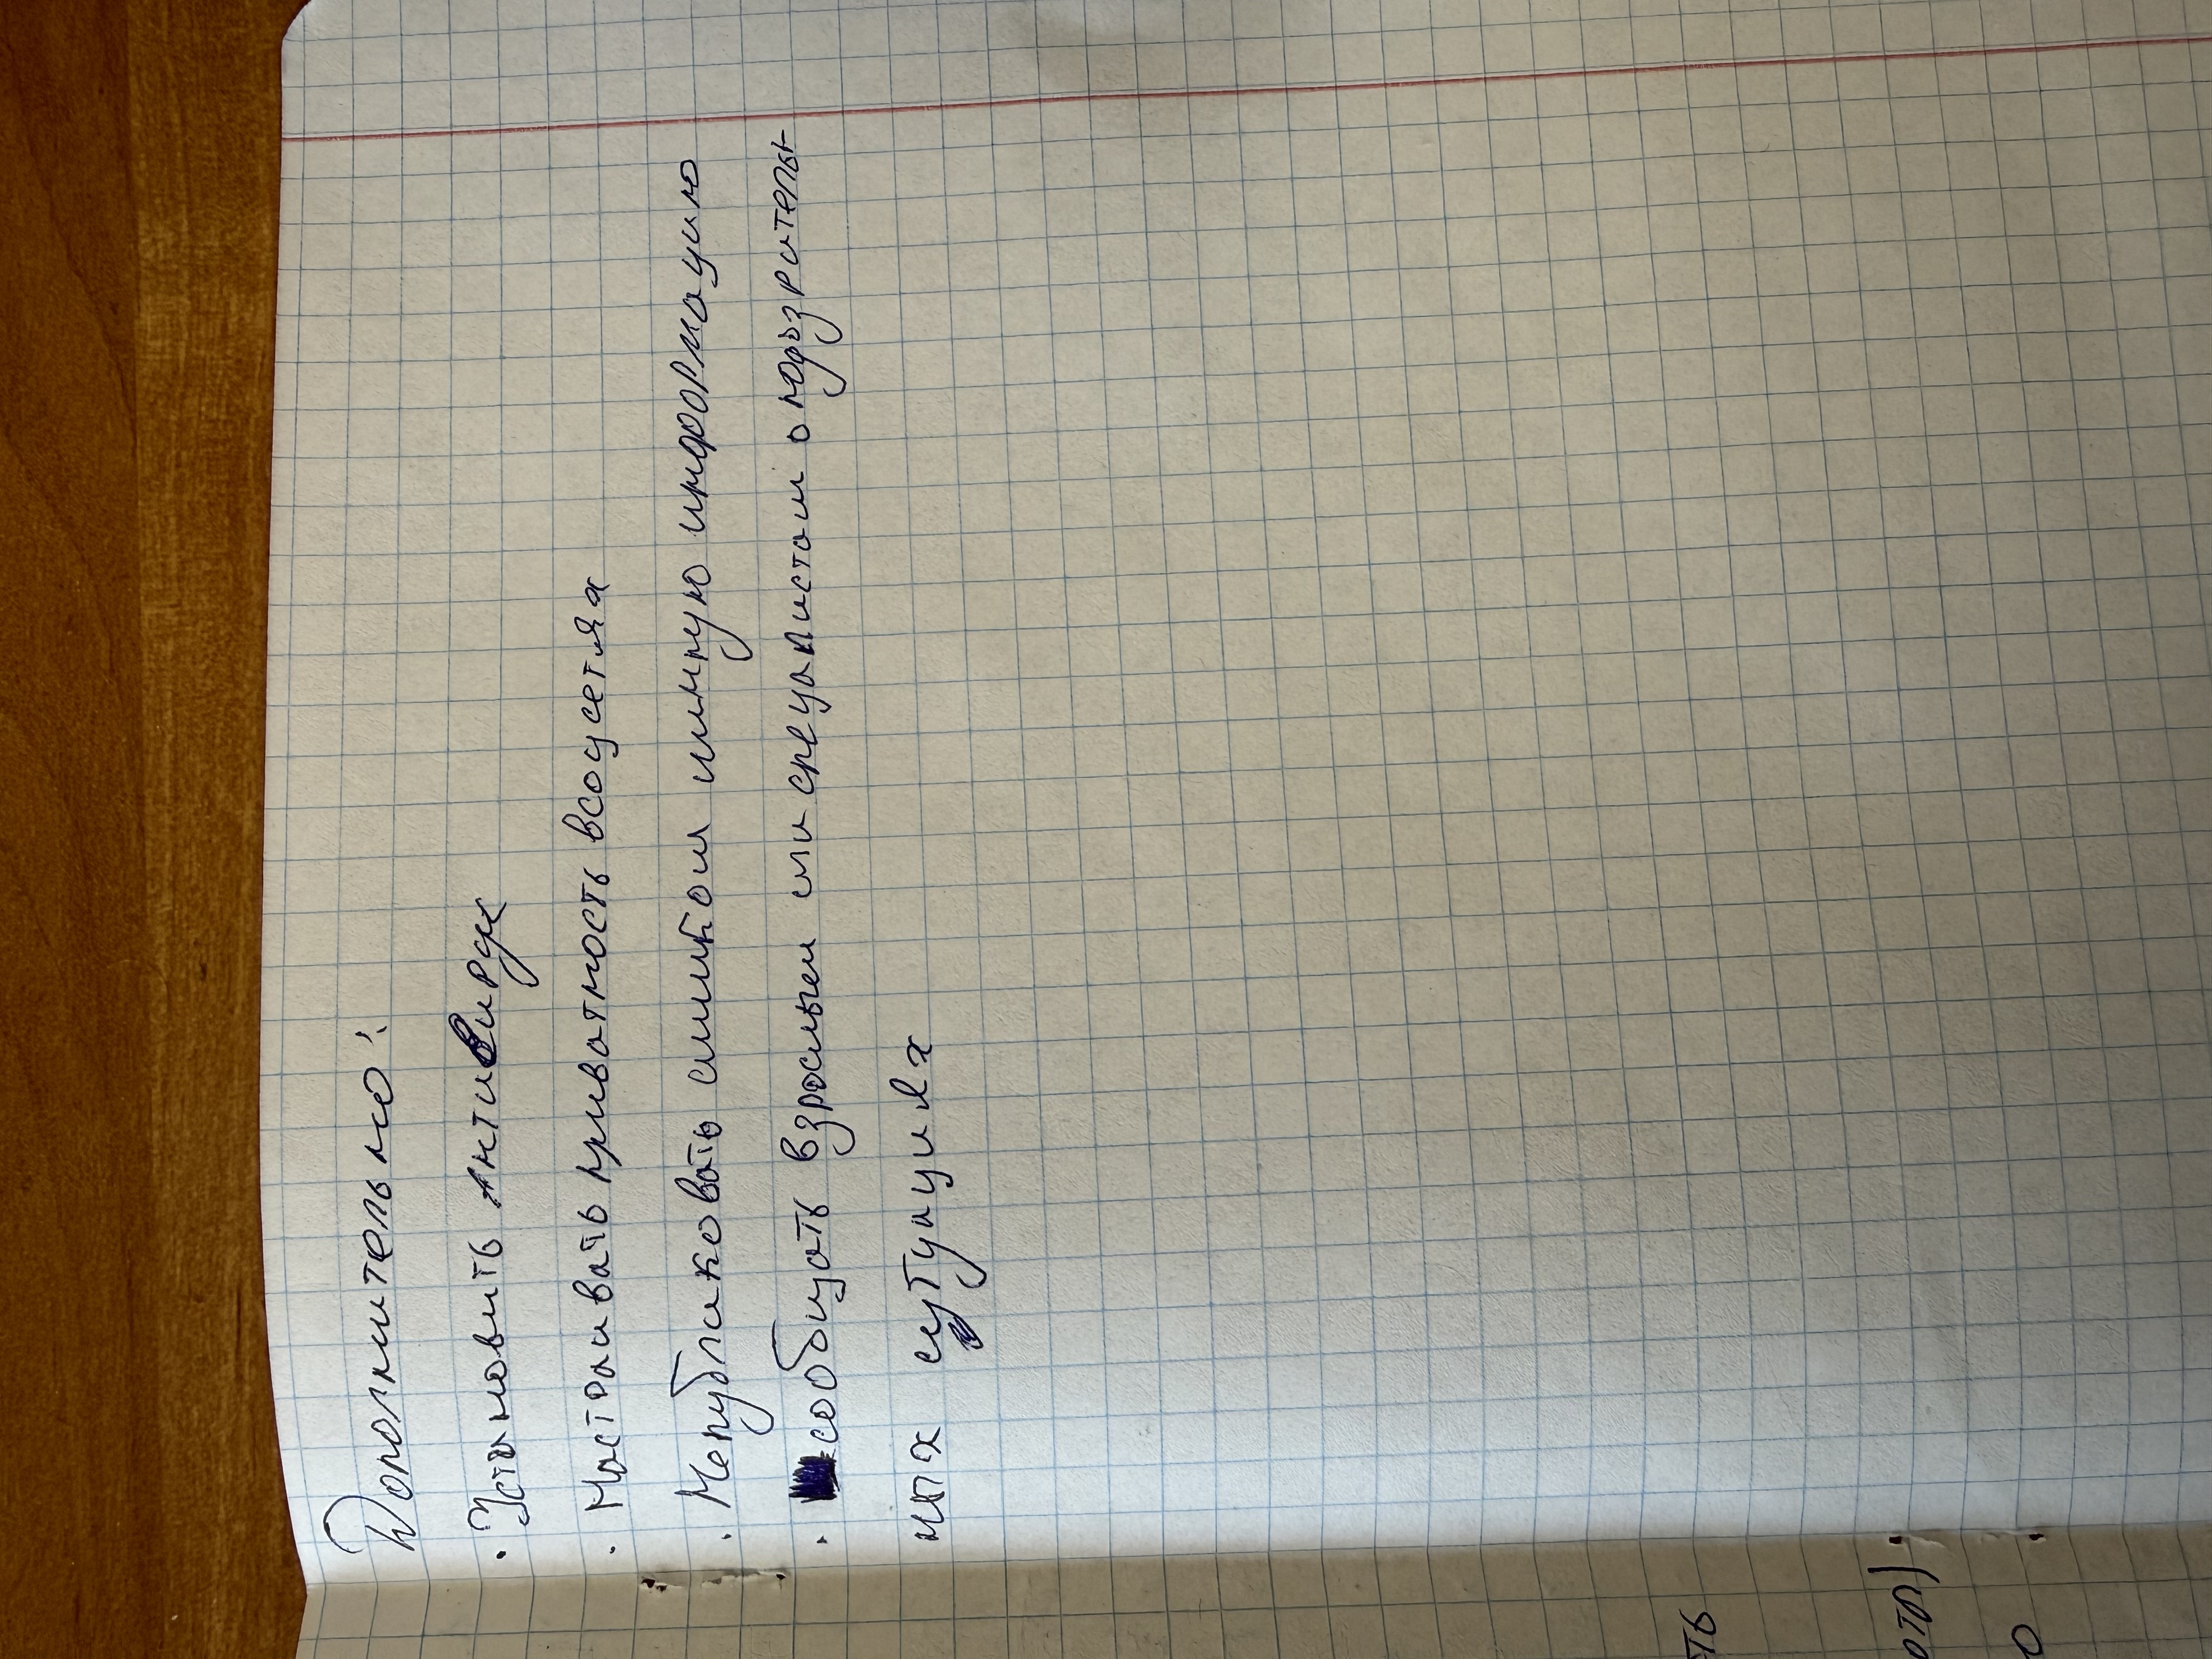 Дополнительно:
· Установить антивирус
· Настраивать приватность всоцсетях
· Непубликовать слишком личную информацию
· сообщать взрослым или специалистам о подозритель
ных ситуациях
ть
о